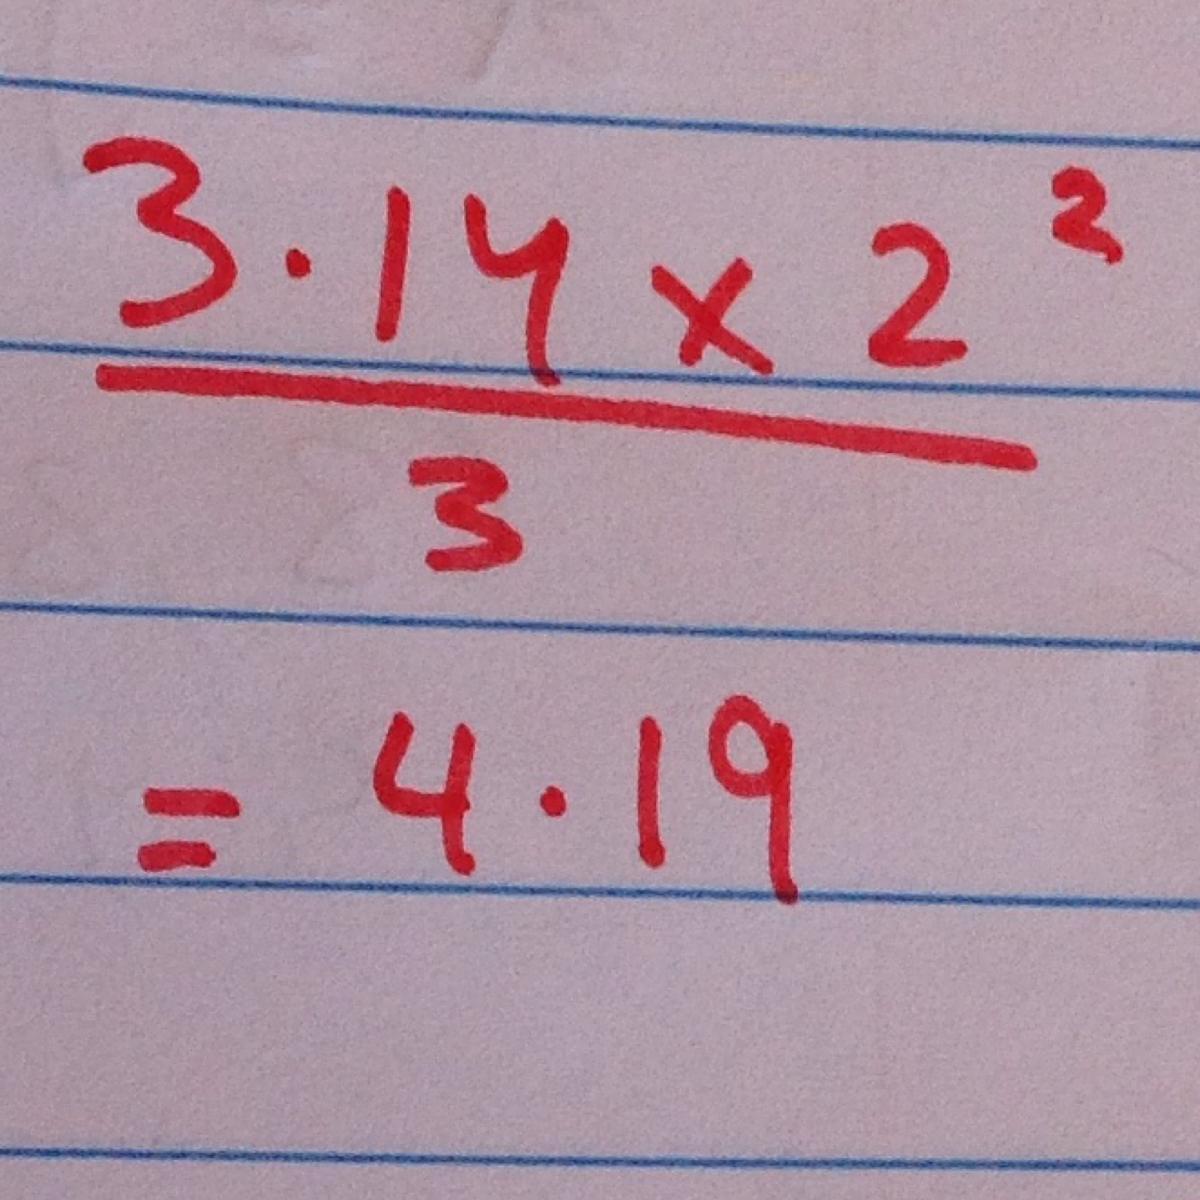 3.14 x 2²
3
= 4.19